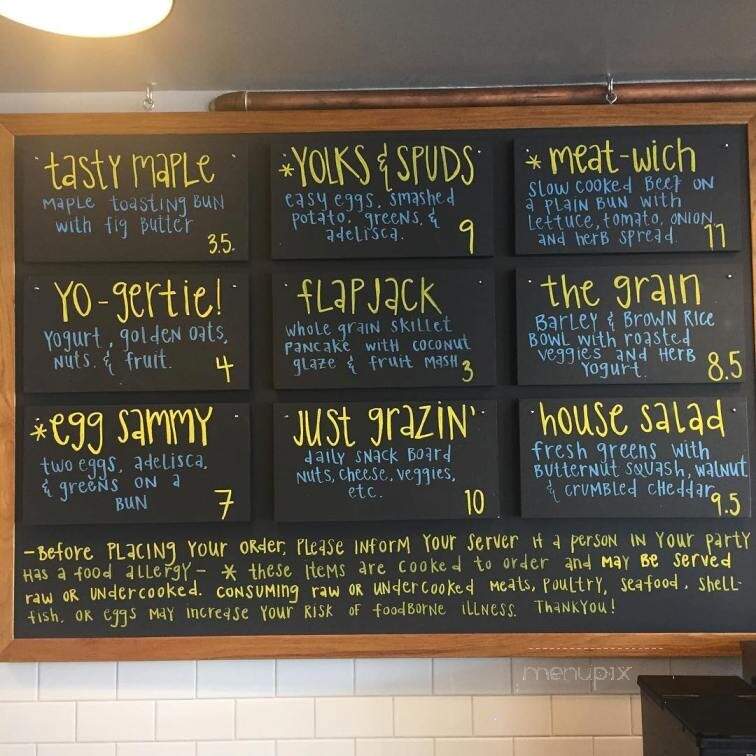 tasty maple
maple toasting bun
with fig butter
3.5
*YOLKS & SPUDS
easy eggs, smashed
potato, greens, &
adelisca.
9
* meat-wich
slow cooked beef on
a plain bun with
lettuce, tomato, onion
and herb spread.
11
YO-gertie!
yogurt, golden oats,
nuts, & fruit.
4
flapjack
whole grain skillet
pancake with coconut
glaze & fruit mash
3
the grain
Barley & Brown Rice
Bowl with roasted
veggies and herb
yogurt.
8.5
*egg sammy
two eggs, adelisca,
& greens on a
bun
7
just grazin'
daily snack board
nuts, cheese, veggies,
etc.
10
house salad
fresh greens with
butternut squash, walnut
& crumbled cheddar
9.5
- Before placing your order, please inform your server if a person in your party
has a food allergy - * these items are cooked to order and may be served
raw or undercooked. consuming raw or undercooked meats, poultry, seafood, shell-
fish, or eggs may increase your risk of foodborne illness. Thankyou!
menupix